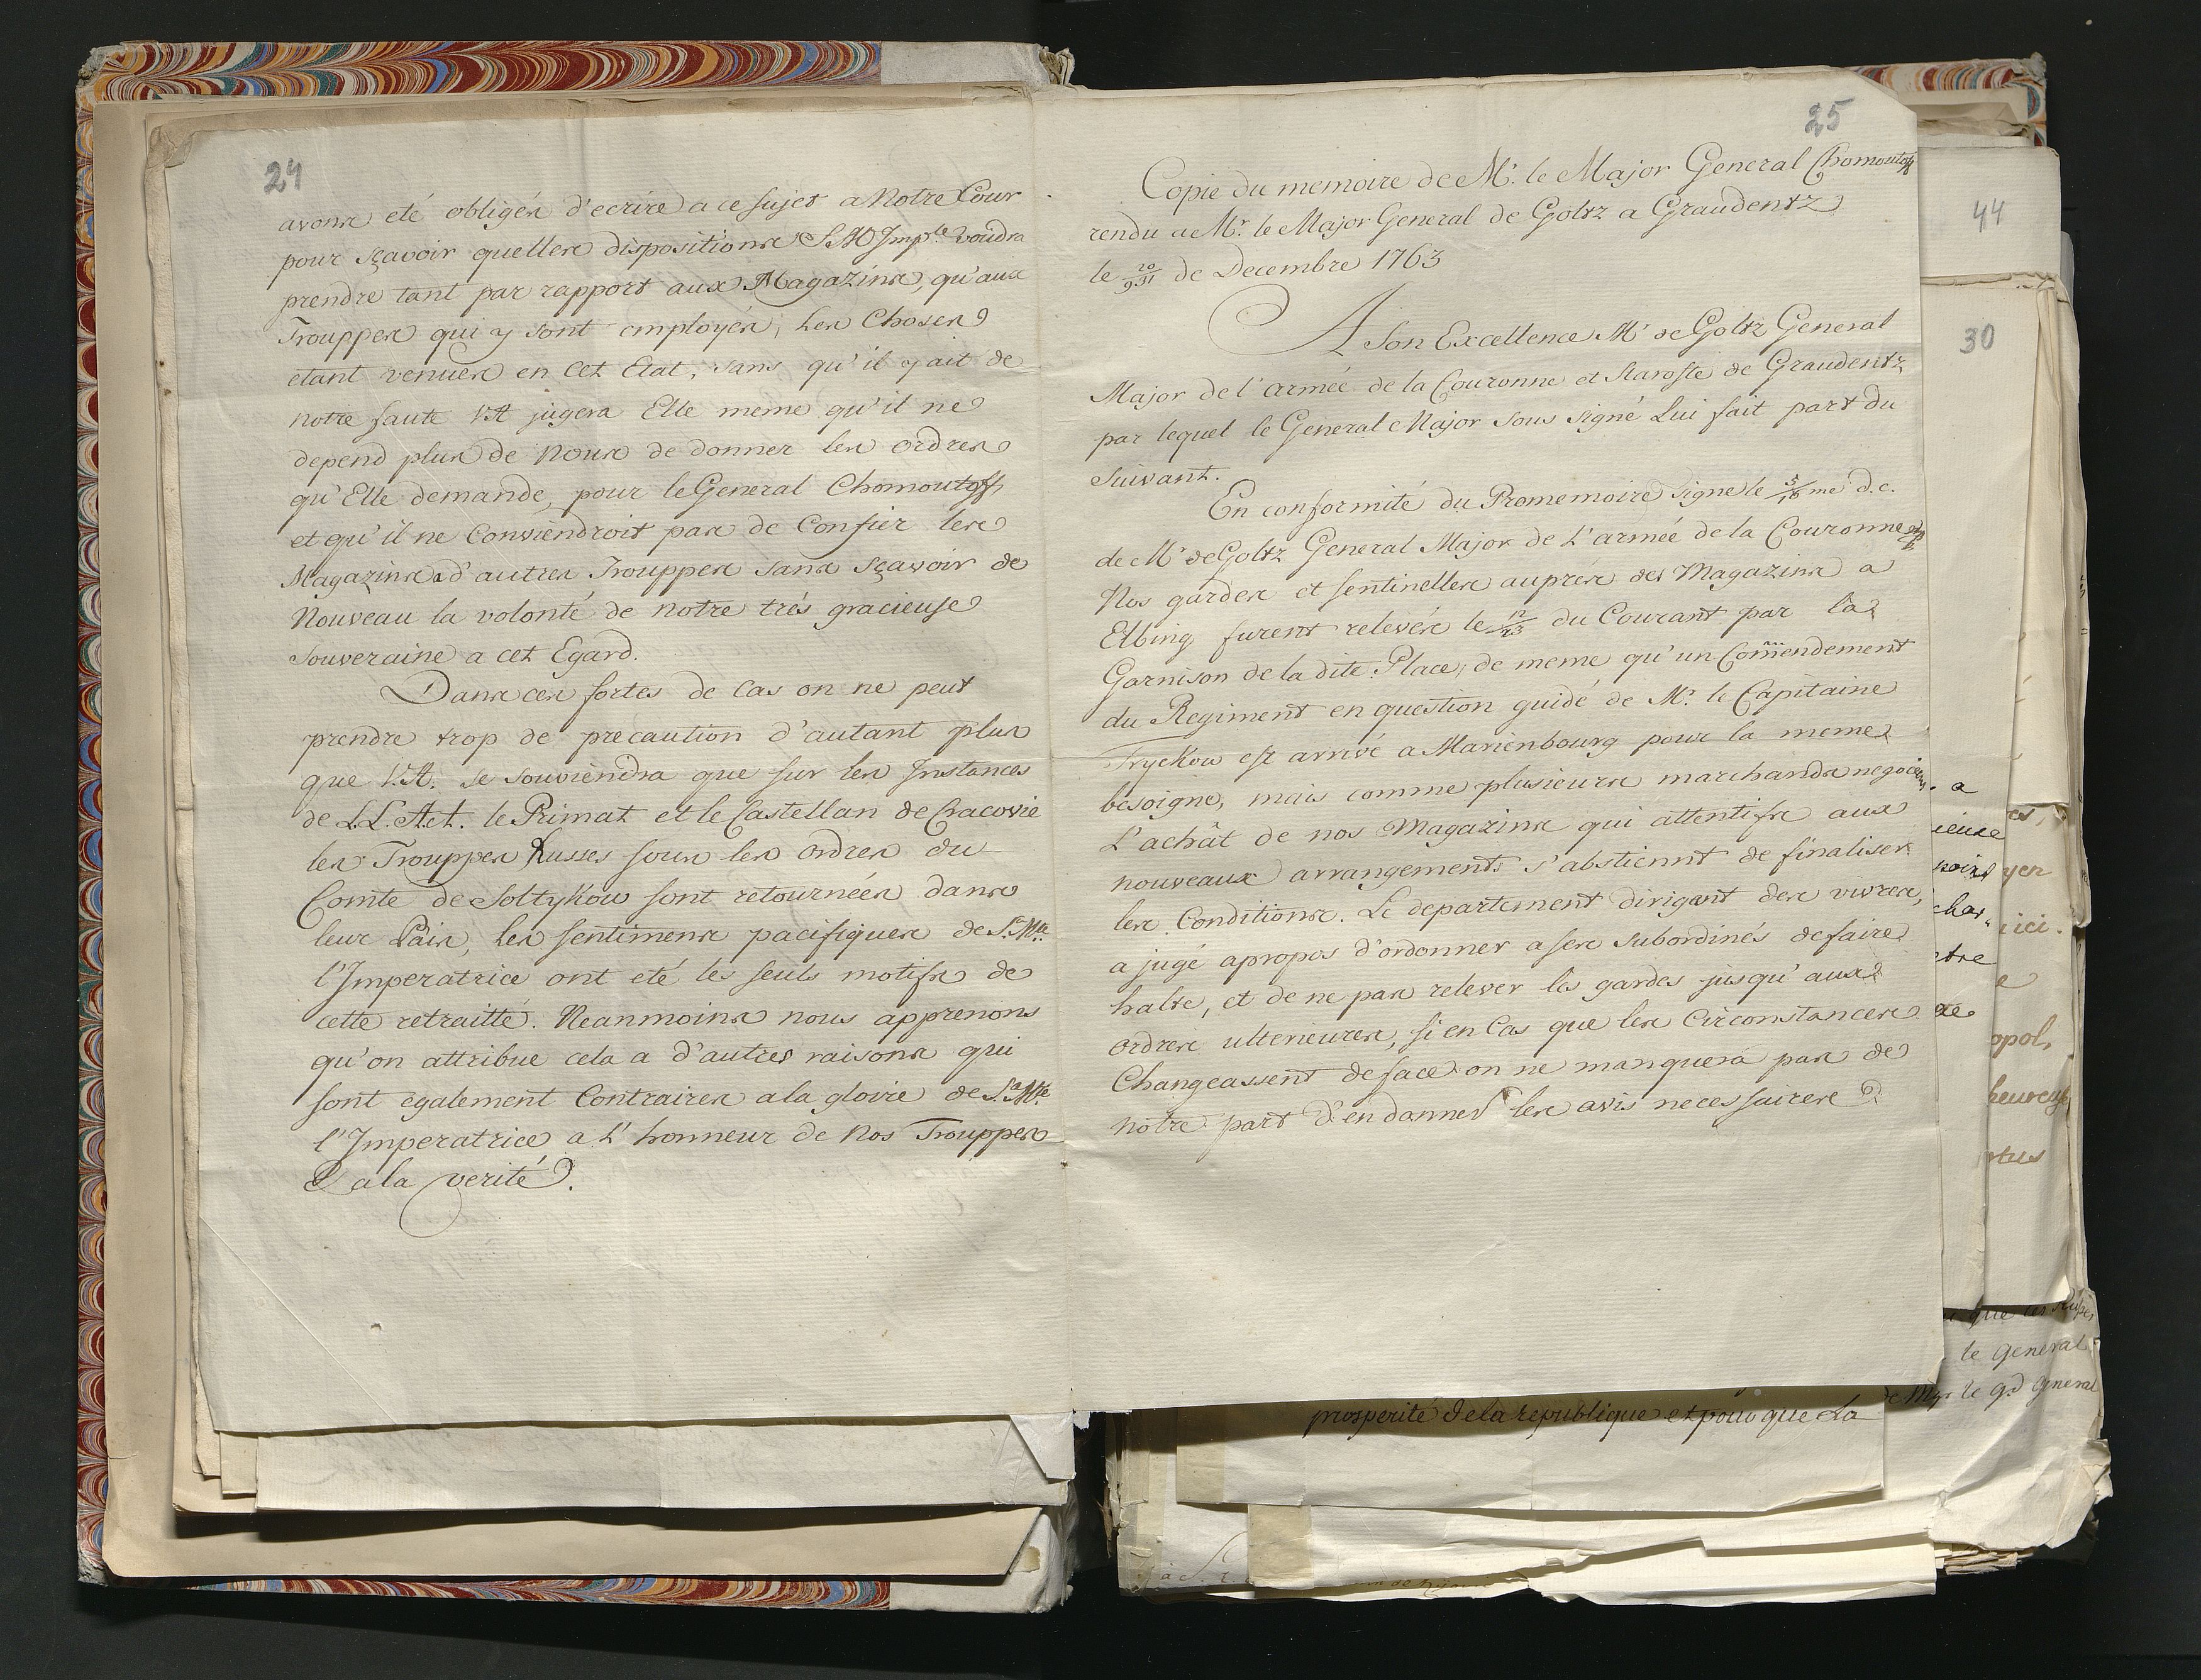 24
avons eté obligés d'ecrire a ce sujet a Notre Cour
pour sçavoir quelles dispositions S. M Imp.le voudra
prendre tant par rapport aux Magazins, qu'aux
Trouppes qui y sont employés, Les Choses
etant venues en Cet Etat, sans qu'il y ait de
notre faute V.A jugera Elle meme qu'il ne
depend plus de Nous de donner les ordres
qu'Elle demande, pour le General Chomoutoff
et qu'il ne Conviendroit pas de Confier les
Magazins a d'autres Trouppes sans sçavoir de
Nouveau la volonté de notre trés gracieuse
Souveraine a cet Egard.
Dans ces sortes de Cas on ne peut
prendre trop de precaution d'autant plus
que V.A. se souviendra que sur les Instances
de L.L. A.et. le Primat et le Castellan de Cracovie
les Trouppes Russes sous les ordres du
Comte de Soltykow sont retournées dans
leur Païs, les sentimens pacifiques de S. Mté
l'Imperatrice ont eté les seuls motifs de
cette retraitté. Neanmoins nous apprenons
qu'on attribue cela a d'autres raisons qui
sont egalement Contraires a la gloire de Sa. Mté
l'Imperatrice a L'honneur de Nos Trouppes
& a la verité.
25
Copie du memoire de Mr. le Major General Chomoutoff
rendu a Mr. le Major General de Goltz a Graudentz
le 20/931 de Decembre 1763
A Son Excellence Mr de Goltz General
Major de l'armée de la Couronne et Staroste de Graudentz
par lequel le General Major sous signé Lui fait part du
Suivant.
En conformité du Promemoire signe le 5/16 me d.c.
de Mr de Goltz General Major de L'armée de la Couronne
Nos gardes et sentinelles auprès des Magazins a
Elbing furent relevés le 12/23 du Courant par la
Garnison de la dite Place, de meme qu'un Com̃endement
du Regiment en question guidé de Mr. le Capitaine
Tryckow est arrivé a Marienbourg pour la meme
besoigne, mais comme plusieurs marchands negocie
L'achât de nos Magazins qui attentifs aux
nouveaux arrangements s'abstiennt de finaliser
les Conditions. Le departement dirigant des vivres,
a jugé apropos d'ordonner a ses subordinés de faire
halte, et de ne pas relever les gardes jusqu'aux
ordres ulterieures, si en Cas que les Circonstances
Changeassent de face on ne manquera pas de
notre part d'en donner les avis necessaires
44
30
a
ieuse
etre
de
yer
ici.
e
opol,
heureux
le General
de Mgr le gd General
prosperité de la republique et pour que La